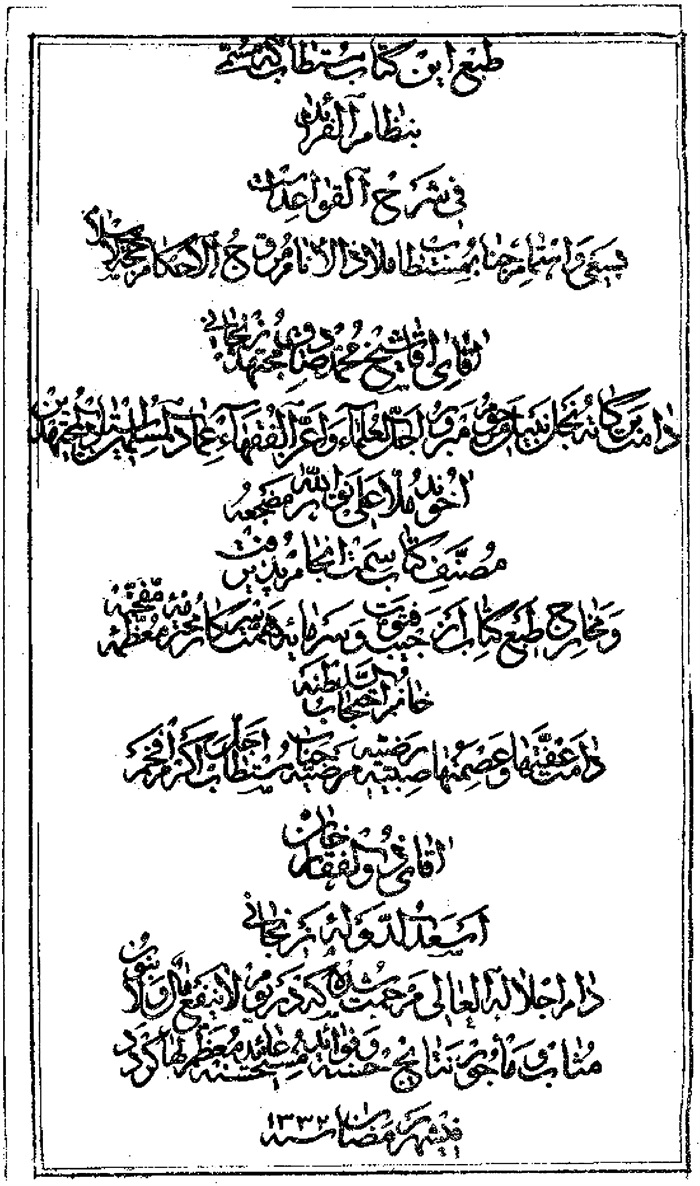 طبع این کتاب مستطاب که مسمی
بنظام الفرائد
فی شرح القواعد است
بسعی و اهتمام جناب مستطاب ملاذ الانام مروّج الاحکام حجة الاسلام
آقای آقا شیخ محمد صادق مجتهد زنجانی
دامت برکاته نجل نبیل مرحوم مبرور اجل العلماء و اعز الفقهاء عماد المسلمین المجتهدین
آخوند ملا علی نور الله مضجعه
مصنف کتاب سمت انجام پذیرفت
و مخارج طبع کتاب از جیب فتوت و سرمایه همت سرکار محترمه مفخمه معظمه
خانم احتجاب السلطنه
دامت عفتها و عصمتها صبیه رضیه مرضیه جناب مستطاب اجل اکرم افخم
آقای ذوالفقار خان
اسعد الدوله زنجانی
دام اجلاله العالی مرحمت شده که در یوم لا ینفع مال ولا بنون
مثاب و مأجور و نتایج حسنه و فواید مستحسنه عاید معظم لها گردد
فی شهر رمضان سنه ۱۳۳۲